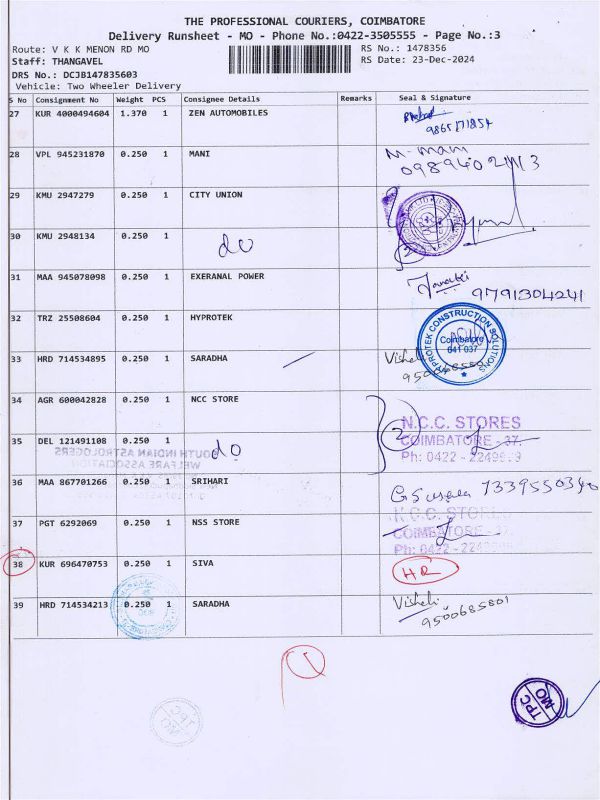 THE PROFESSIONAL COURIERS, COIMBATORE
Delivery Runsheet - MO - Phone No.:0422-3505555 - Page No.:3
Route: V K K MENON RD MO RS No.: 1478356
Staff: THANGAVEL RS Date: 23-Dec-2024
DRS No.: DCJB147835603
Vehicle: Two Wheeler Delivery
S No Consignment No Weight PCS Consignee Details Remarks Seal & Signature
27 KUR 4000494604 1.370 1 ZEN AUTOMOBILES
28 VPL 945231870 0.250 1 MANI M. mani
29 KMU 2947279 0.250 1 CITY UNION
30 KMU 2948134 0.250 1 do
31 MAA 945078098 0.250 1 EXERANAL POWER
9791304241
32 TRZ 25508604 0.250 1 HYPROTEK
HYPROTEK CONSTRUCTION SOLUTIONS
Coimbatore
641 037
33 HRD 714534895 0.250 1 SARADHA
34 AGR 600042828 0.250 1 NCC STORE
2
N.C.C. STORES
COIMBATORE - 37.
35 DEL 121491108 0.250 1 do
SOUTH INDIAN ASTROLOGERS
WELFARE ASSOCIATION
36 MAA 867701266 0.250 1 SRIHARI
N.C.C. STORES
37 PGT 6292069 0.250 1 NSS STORE
COIMBATORE - 37.
38 KUR 696470753 0.250 1 SIVA HR
39 HRD 714534213 0.250 1 SARADHA
9500685801
TPC
MO
TPC
MO